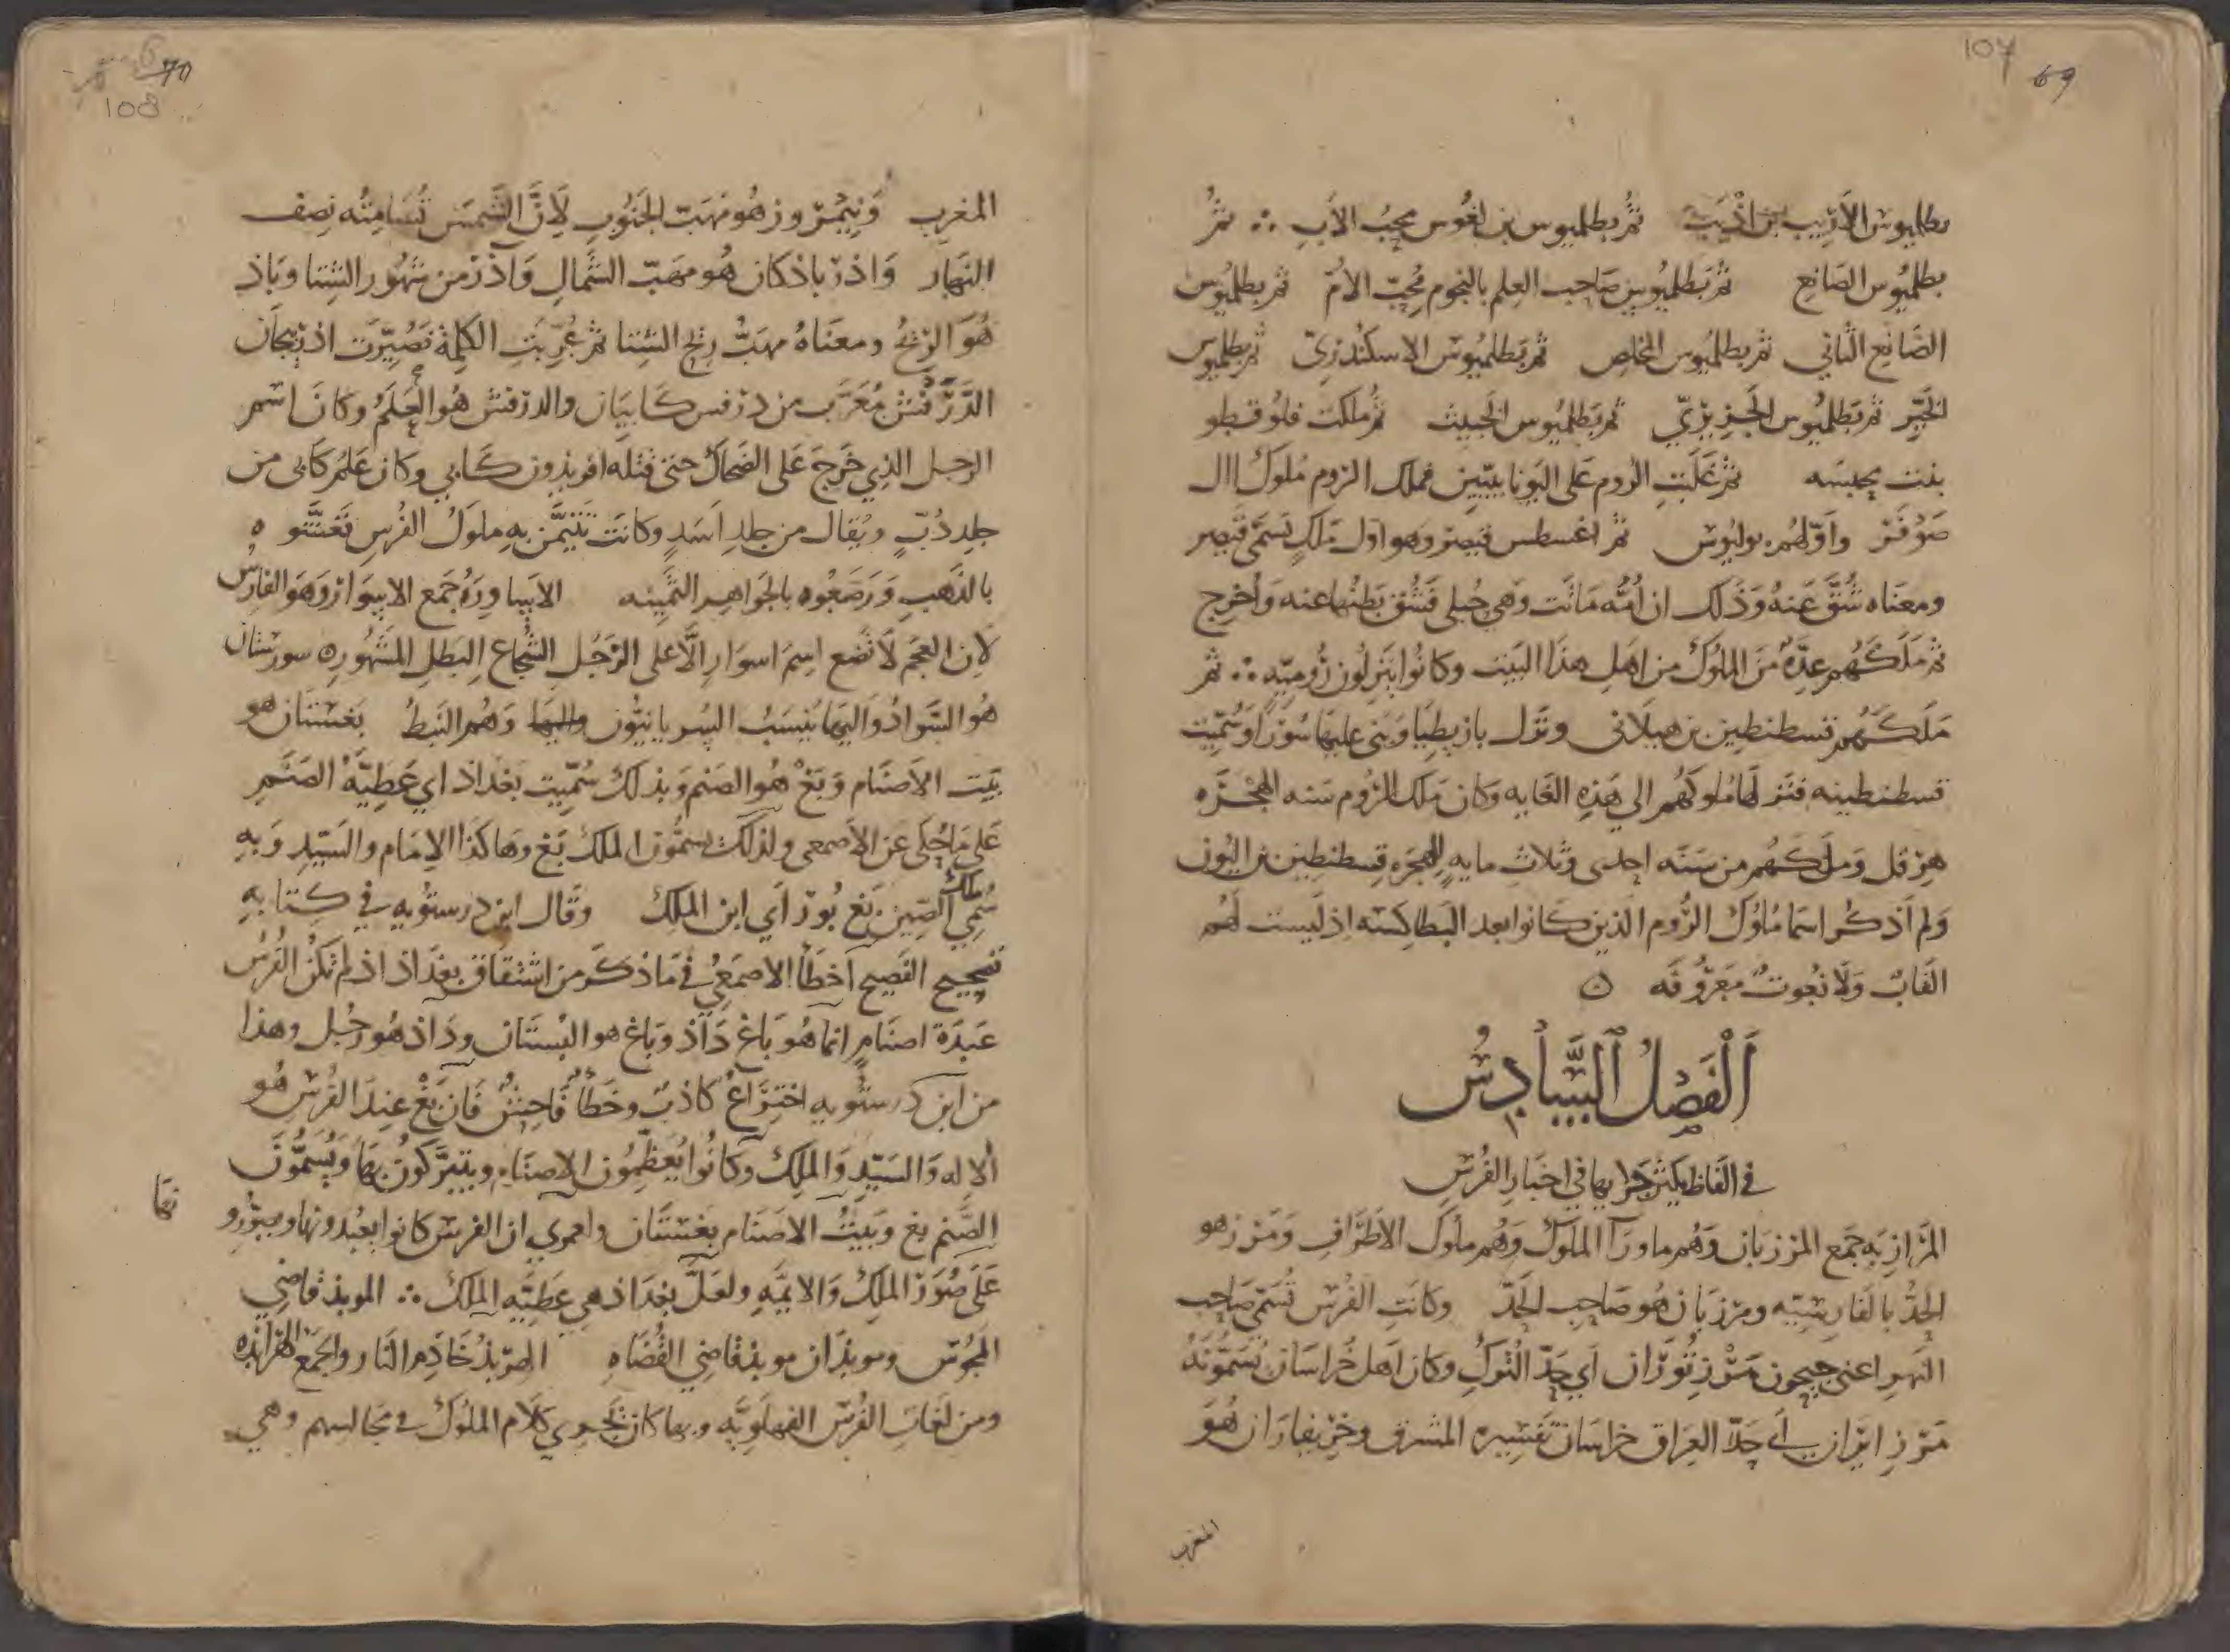 107 69
بطلميوس الأريب بن اذيب ثم بطلميوس بن لغوس محب الأب ∴ ثم
بطلميوس الصانع ثم بطلميوس صاحب العلم بالنجوم محب الأم ثم بطلميوس
الصانع الثاني ثم بطلميوس المخلص ثم بطلميوس الاسكندري ثم بطلميوس
الخير ثم بطلميوس الجزيري ثم بطلميوس الخبيث ثم ملكت قلوفطو
بنت ثم غلبت الروم على اليونانيين فملك الروم ملوك ال
صوفر واولهم يوليوس ثم اغسطس قيصر وهو اول ملك تسمى قيصر
ومعناه شق عنه وذلك ان أمه ماتت وهي حبلى فشق بطنها عنه وأخرج
ثم ملكهم عدة من الملوك من اهل هذا البيت وكانوا ينزلون رومية ∴ ثم
ملكهم قسطنطين بن هيلاني ونزل بازيطيا وبنى عليها سورا وسميت
قسطنطينيه فنزلها ملوكهم الى هذه الغايه وكان ملك الروم سنه الهجره
هرقل وملكهم من سنه احدى وثلاث مايه للهجره قسطنطين بن اليون
ولم اذكر اسما ملوك الروم الذين كانوا بعد البطالسه اذ ليست لهم
القاب ولا نعوت معروفه ه
الفصل السادس
في الفاظ يكثر جرايها في اخبار الفرس
المرازبه جمع المرزبان وهم ما ورآ الملوك وهم ملوك الاطراف ومرز هو
الحد بالفارسيه ومرزبان هو صاحب الحد وكانت الفرس تسمى صاحب
النهر اعني جيحون مرز توران اي حد الترك وكان اهل خراسان يسمونه
مرز ايران اي حد العراق خراسان تفسيره المشرق وخربفاران هو
المغرب
70
108
المغرب ونيمروز هو مهب الجنوب لان الشمس تسامته نصف
النهار واذرباذكان هو مهب الشمال وآذر من شهور الشتا وباذ
هو الريح ومعناه مهب ريح الشتا ثم عربت الكلمة فصيرت اذربيجان
الدرفش معرب من درفس كابيان والدرفش هو العلم وكان اسم
الرجل الذي خرج على الضحاك حتى قتله افريذون كابي وكان علم كابي من
جلد دب ويقال من جلد اسد وكانت تتيمن به ملوك الفرس فغشوه
بالذهب ورصعوه بالجواهر الثمينه الاساوره جمع الاسوار وهو الفارس
لان العجم لا تضع اسم اسوار الا على الرجل الشجاع البطل المشهور ه سورستان
هو السواد واليها ينسب السريانيون وهم النبط بغستان هو
بيت الاصنام وبغ هو الصنم وبذلك سميت بغداذ اي عطية الصنم
على ما حكى عن الاصمعي ولذلك يسمون الملك بغ وهاكذا الامام والسيد وبه
سمي ملك الصين بغ بور أي ابن الملك وقال ابن درستويه في كتابه
تصحيح الفصيح اخطأ الاصمعي في ما ذكر من اشتقاق بغداذ اذ لم تكن الفرس
عبدة اصنام انما هو باغ داذ وباغ هو البستان وداذ هو رجل وهذا
من ابن درستويه اختراع كاذب وخطأ فاحش فان بغ عند الفرس هو
الاله والسيد والملك وكانوا يعظمون الاصنام ويتبركون بها ويسمون
الصنم بغ وبيت الاصنام بغستان ولعمري ان الفرس كانوا يعبدونها
على صور الملك والايمه ولعل بغداذ هي عطيه الملك ∴ الموبذ قاضي
المجوس وموبذان موبذ قاضي القضاه الهربذ خادم النار والجمع الهرابذه
ومن لغات الفرس الفهلويه وبها كان يجري كلام الملوك في مجالسهم وهي